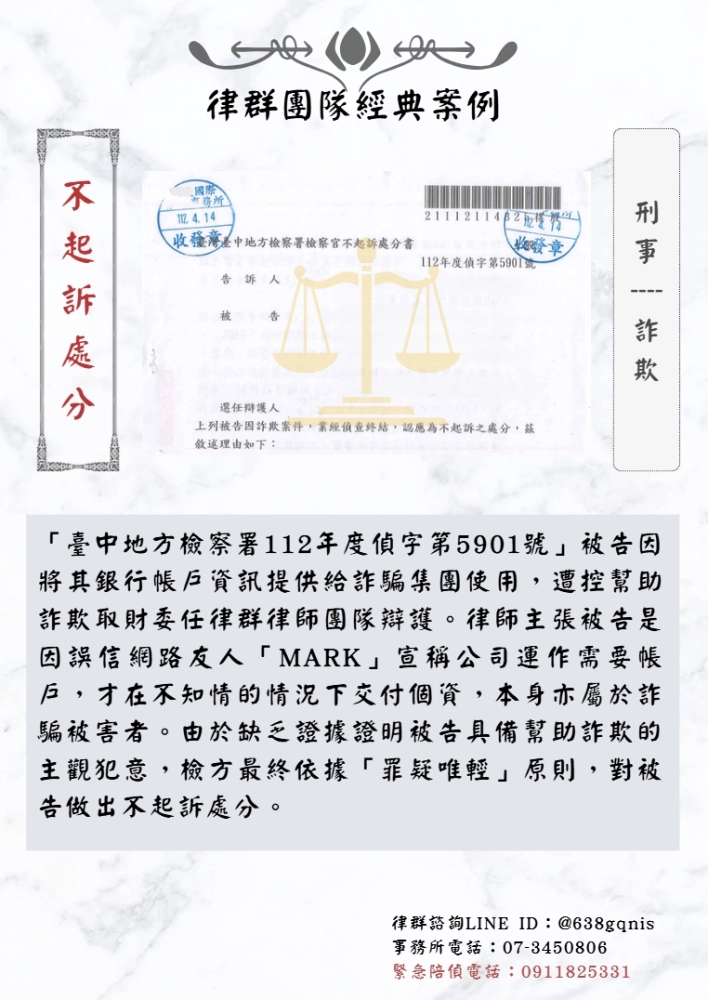 律群團隊經典案例
不起訴處分
刑事----詐欺
國際
事務所
112.4.14
收發章
112.4.14
收發章
臺灣臺中地方檢察署檢察官不起訴處分書
112年度偵字第5901號
告訴人
被告
選任辯護人
上列被告因詐欺案件,業經偵查終結,認應為不起訴之處分,茲
敘述理由如下:
「臺中地方檢察署112年度偵字第5901號」被告因
將其銀行帳戶資訊提供給詐騙集團使用,遭控幫助
詐欺取財委任律群律師團隊辯護。律師主張被告是
因誤信網路友人「MARK」宣稱公司運作需要帳
戶,才在不知情的情況下交付個資,本身亦屬於詐
騙被害者。由於缺乏證據證明被告具備幫助詐欺的
主觀犯意,檢方最終依據「罪疑唯輕」原則,對被
告做出不起訴處分。
律群諮詢LINE ID:@638gqnis
事務所電話:07-3450806
緊急陪偵電話:0911825331